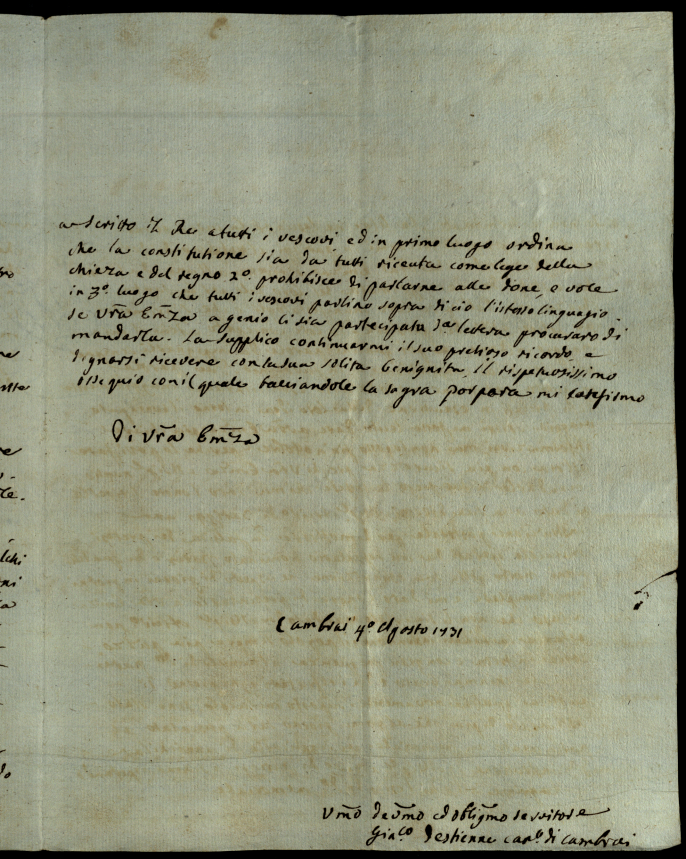 a scritto il Re a tutti i vescovi ed in primo luogo ordina
che la constitutione sia da tutti riceuta come lege della
chieza e del regno 2º. prohibisce di parlarne alle done, e vole
in 3º. luogo che tutti i vescovi parlino sopra di cio l'istesso linguagio.
se vrã Emza a genio li sia partecipata da lettera procuraro di
mandarla. La supplico continuarmi il suo pretioso ricordo, e
degnarsi ricevere con la sua solita benignita il rispetuosissimo
ossequio con il quale bacciandole la sagra porpora mi
Di vrã Emza
Cambrai 4º Agosto 1731
Vmõ Devmõ ed obligmõ servitore
Giaco Destienne cano di Cambrai